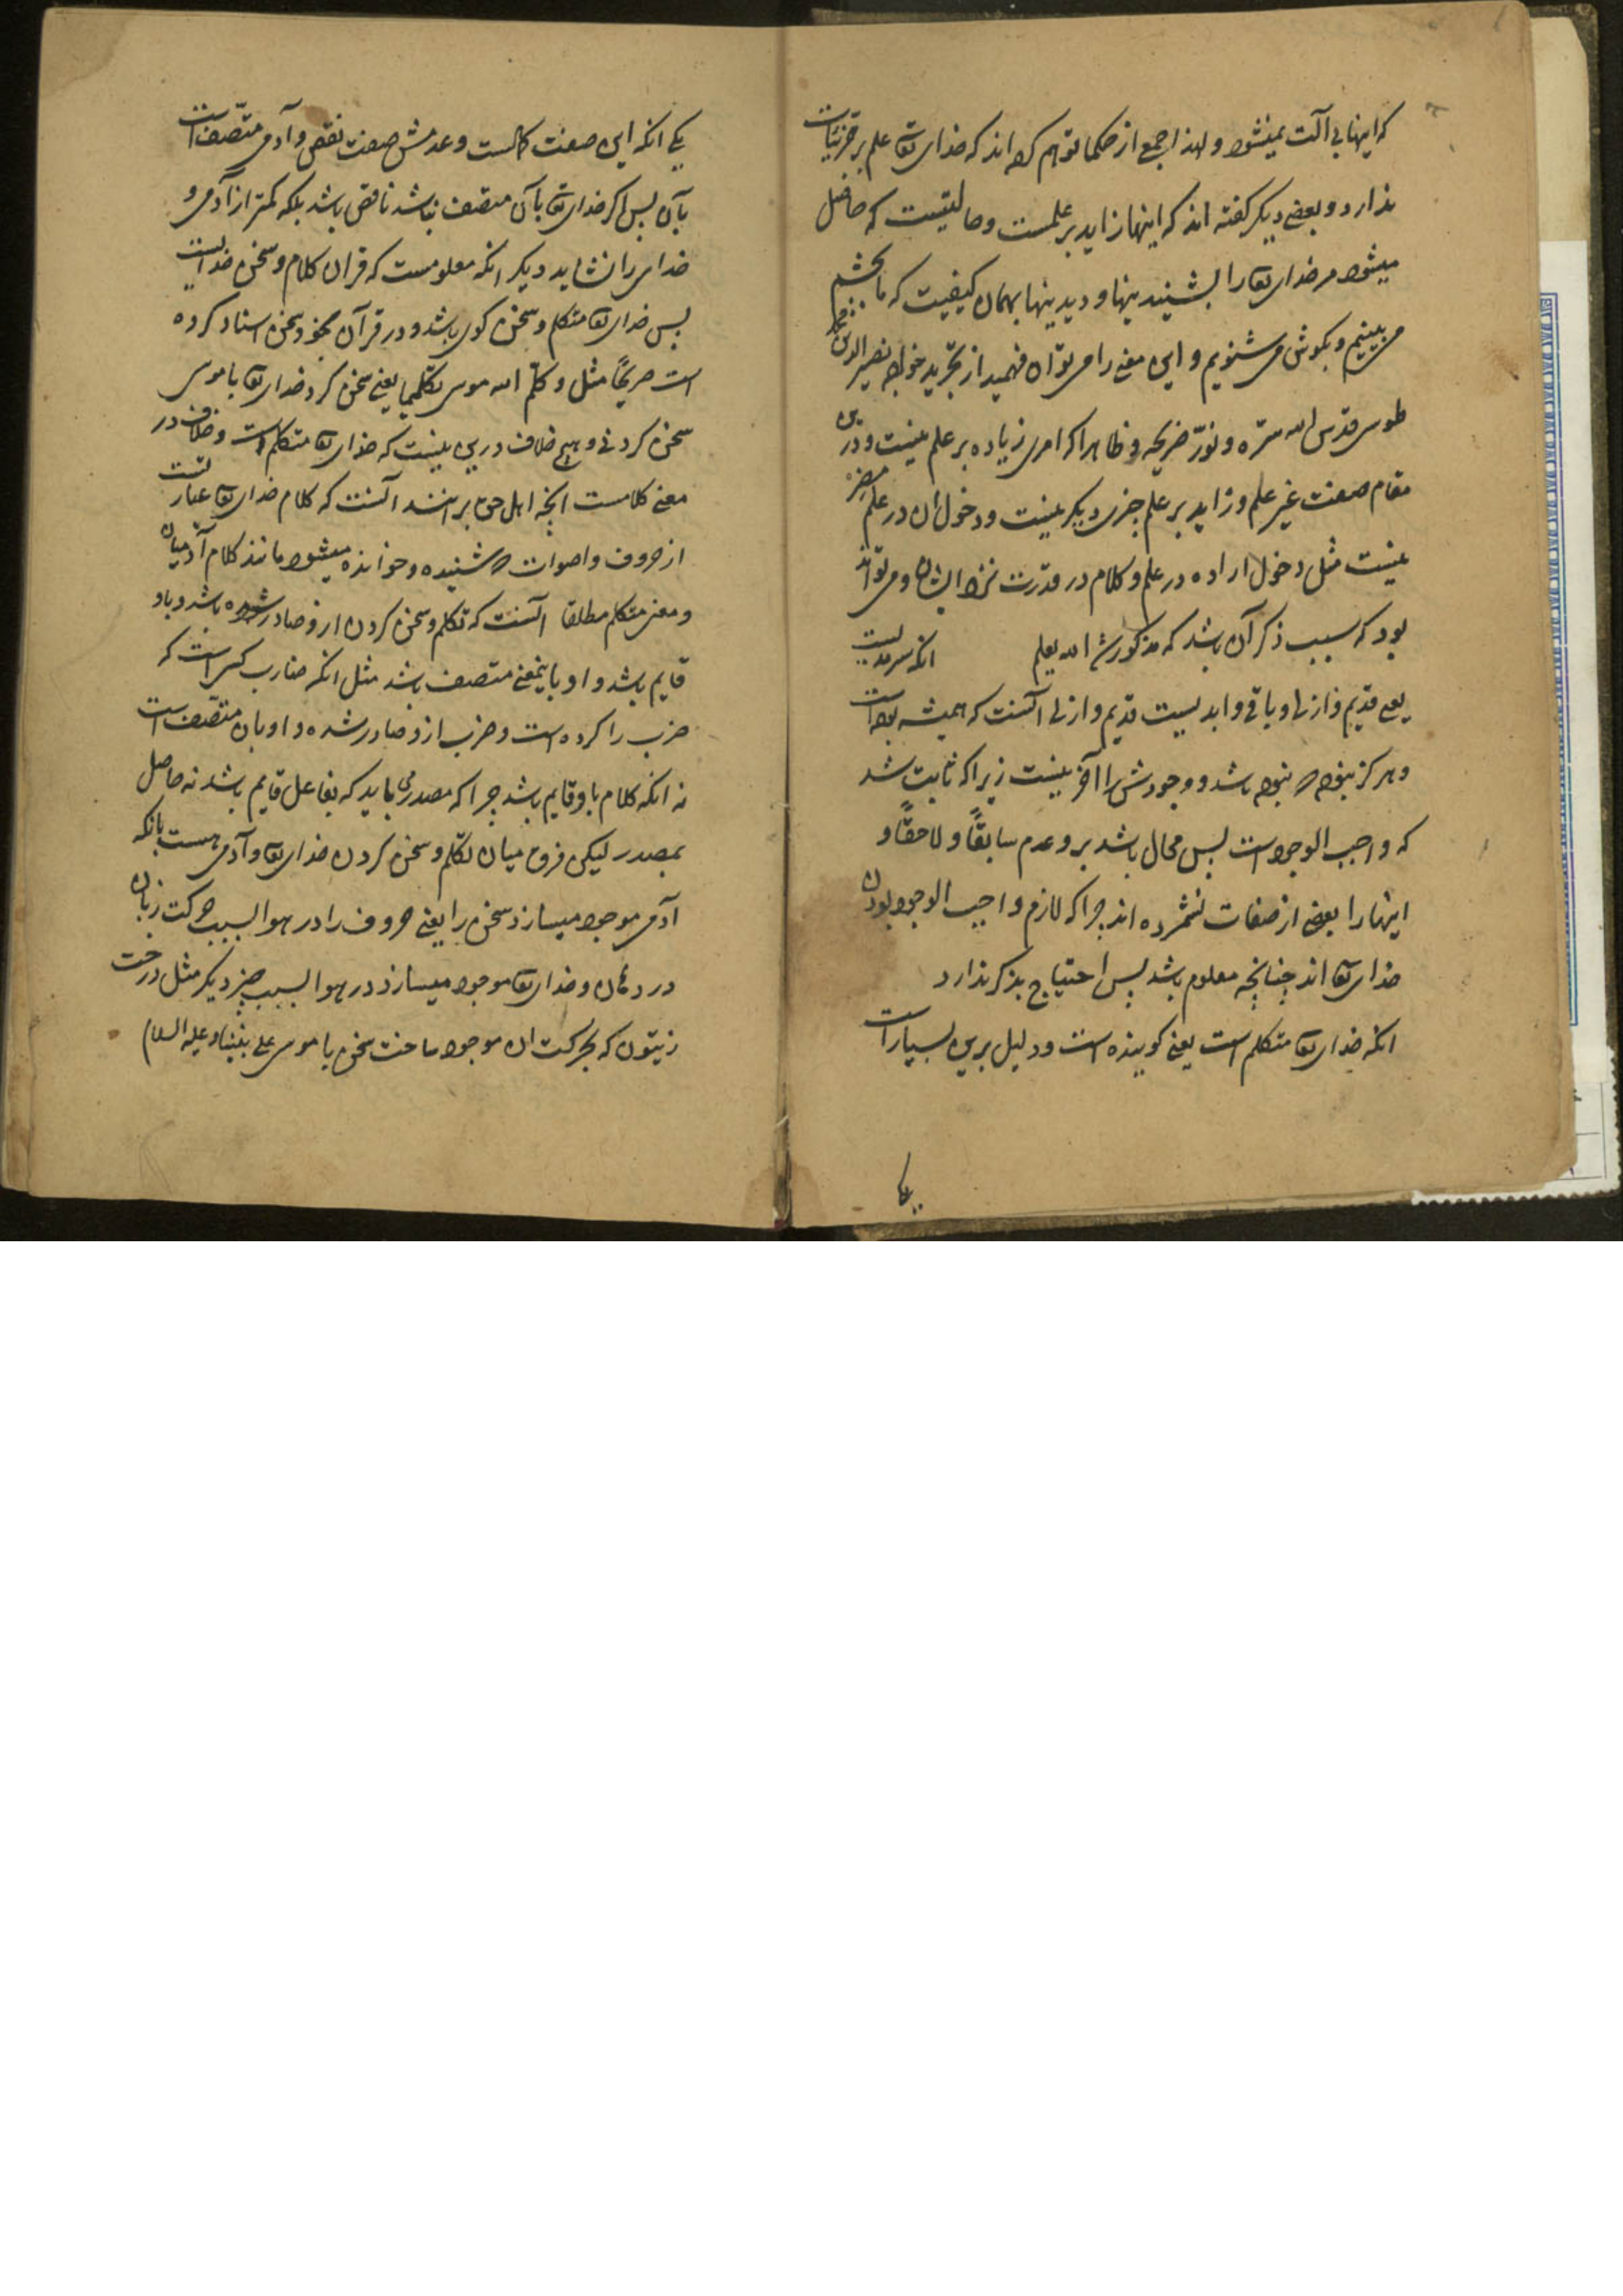 که اینها بی آلت نمیشود و لهذا جمع از حکما توهم کرده اند که خدای تعا علم بر جزئیات
ندارد و بعضی دیگر گفته اند که اینها زاید بر علمست و حالتیست که حاصل
میشود مر خدای تعا را بشنیدینها و دیدینها بهمان کیفیت که ما بچشم
می بینیم و بگوش می شنویم و این معنی را می توان فهمید از تجرید خواجه نصیر الدین محمد
طوسی قدس الله سره و نور ضریحه و ظاهرا که امری زیاده بر علم نیست و درین
مقام صفت غیر علم و زاید بر علم چیزی دیگر نیست و دخول ان در علم مضر
نیست مثل دخول اراده در علم و کلام در قدرت نزد ایشان و می تواند
بود که سبب ذکر آن باشد که مذکور شد الله یعلم انکه سرمدیست
یعنی قدیم و ازلی و باقی و ابدیست قدیم و ازلی آنست که همیشه بوده است
و هرگز نبوده که نبوده باشد و وجودش را آخر نیست زیرا که ثابت شد
که واجب الوجود است پس محال باشد برو عدم سابقاً و لاحقاً و
اینها را بعضی از صفات نشمرده اند چرا که لازم واجب الوجود بودن
خدای تعا اند چنانچه معلوم باشد پس احتیاج بذکر ندارد
انکه خدای تعا متکلم است یعنی گوینده است و دلیل برین بسیار است
یکی
یکی انکه این صفت کمالست و عدمش صفت نقص و آدمی متصف است
بآن پس اگر خدای تعا بآن متصف نباشد ناقص باشد بلکه کمتر از آدمی و
خدای را نشاید دیگر انکه معلومست که قران کلام و سخن خداست
پس خدای تعا متکلم و سخن گوی باشد و در قرآن بخود سخن اسناد کرده
است صریحاً مثل و کلم الله موسی تکلیما یعنی سخن کرد خدای تعا با موسی
سخن کردنی و هیچ خلاف درین نیست که خدای تعا متکلم است و خلاف در
معنی کلامست انچه اهل حق برانند آنست که کلام خدای تعا عبارتست
از حروف و اصوات که شنیده و خوانده میشود مانند کلام آدمیان
و معنی متکلم مطلقا آنست که تکلم و سخن کردن ازو صادر شده باشد و باو
قایم باشد و او باینمعنی متصف باشد مثل انکه ضارب کسی است که
ضرب را کرده است و ضرب ازو صادر شده و او بان متصف است
نه انکه کلام باو قایم باشد چرا که مصدر می باید که بفاعل قایم باشد نه حاصل
بمصدر لیکن فرق میان تکلم و سخن کردن خدای تعا و آدمی هست بانکه
آدمی موجود میسازد سخن را یعنی حروف را در هوا بسبب حرکت زبان
در دهان و خدای تعا موجود میسازد در هوا بسبب چیز دیگر مثل درخت
زیتون که بحرکت ان موجود ساخت سخن با موسی علی نبینا و علیه السلام